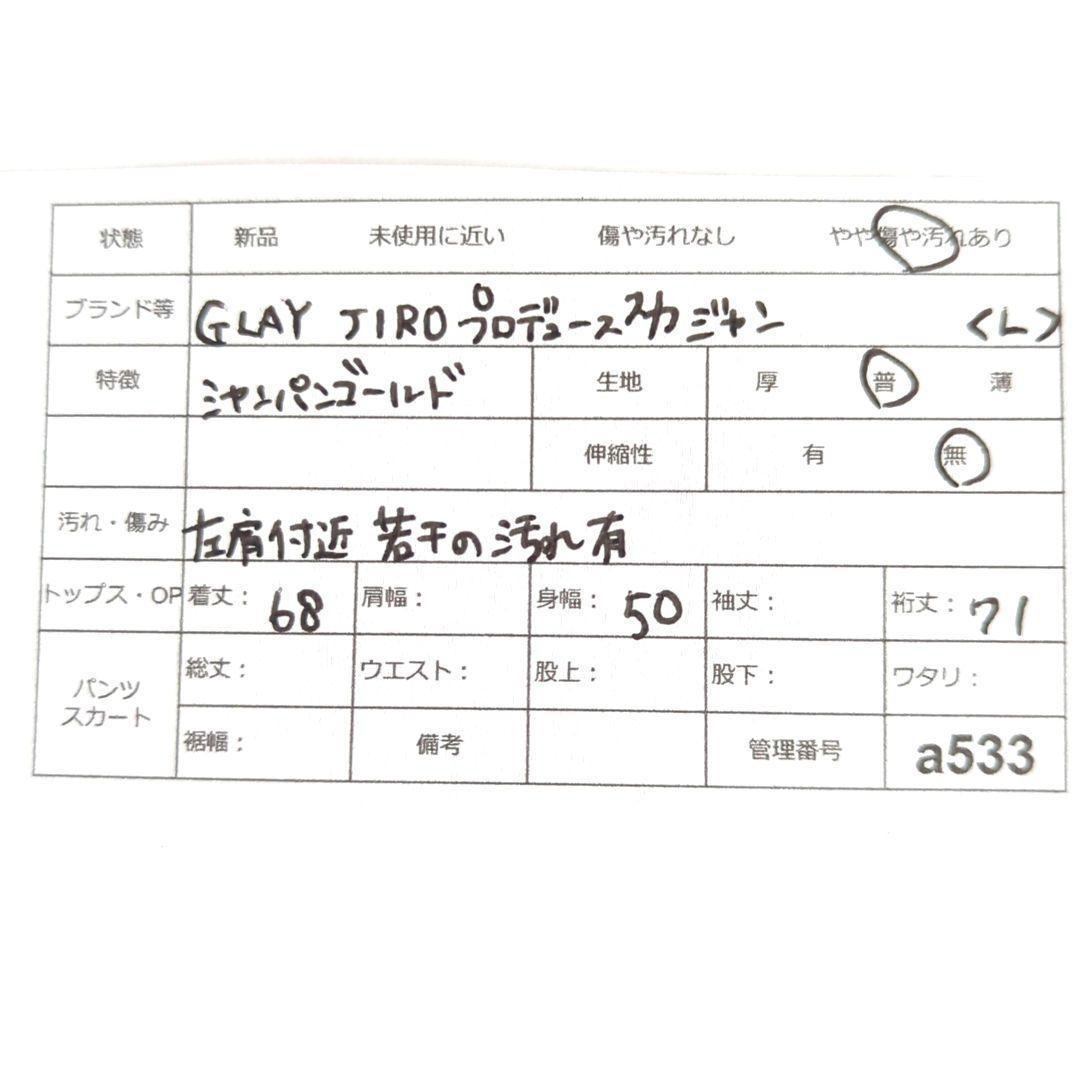 状態 新品 未使用に近い 傷や汚れなし やや傷や汚れあり
ブランド等 GLAY JIRO プロデューススカジャン <L>
特徴 シャンパンゴールド 生地 厚 普 薄
伸縮性 有 無
汚れ・傷み 左肩付近 若干の汚れ有
トップス・OP 着丈: 68 肩幅: 身幅: 50 袖丈: 裄丈: 71
パンツ スカート 総丈: ウエスト: 股上: 股下: ワタリ:
裾幅: 備考 管理番号 a533